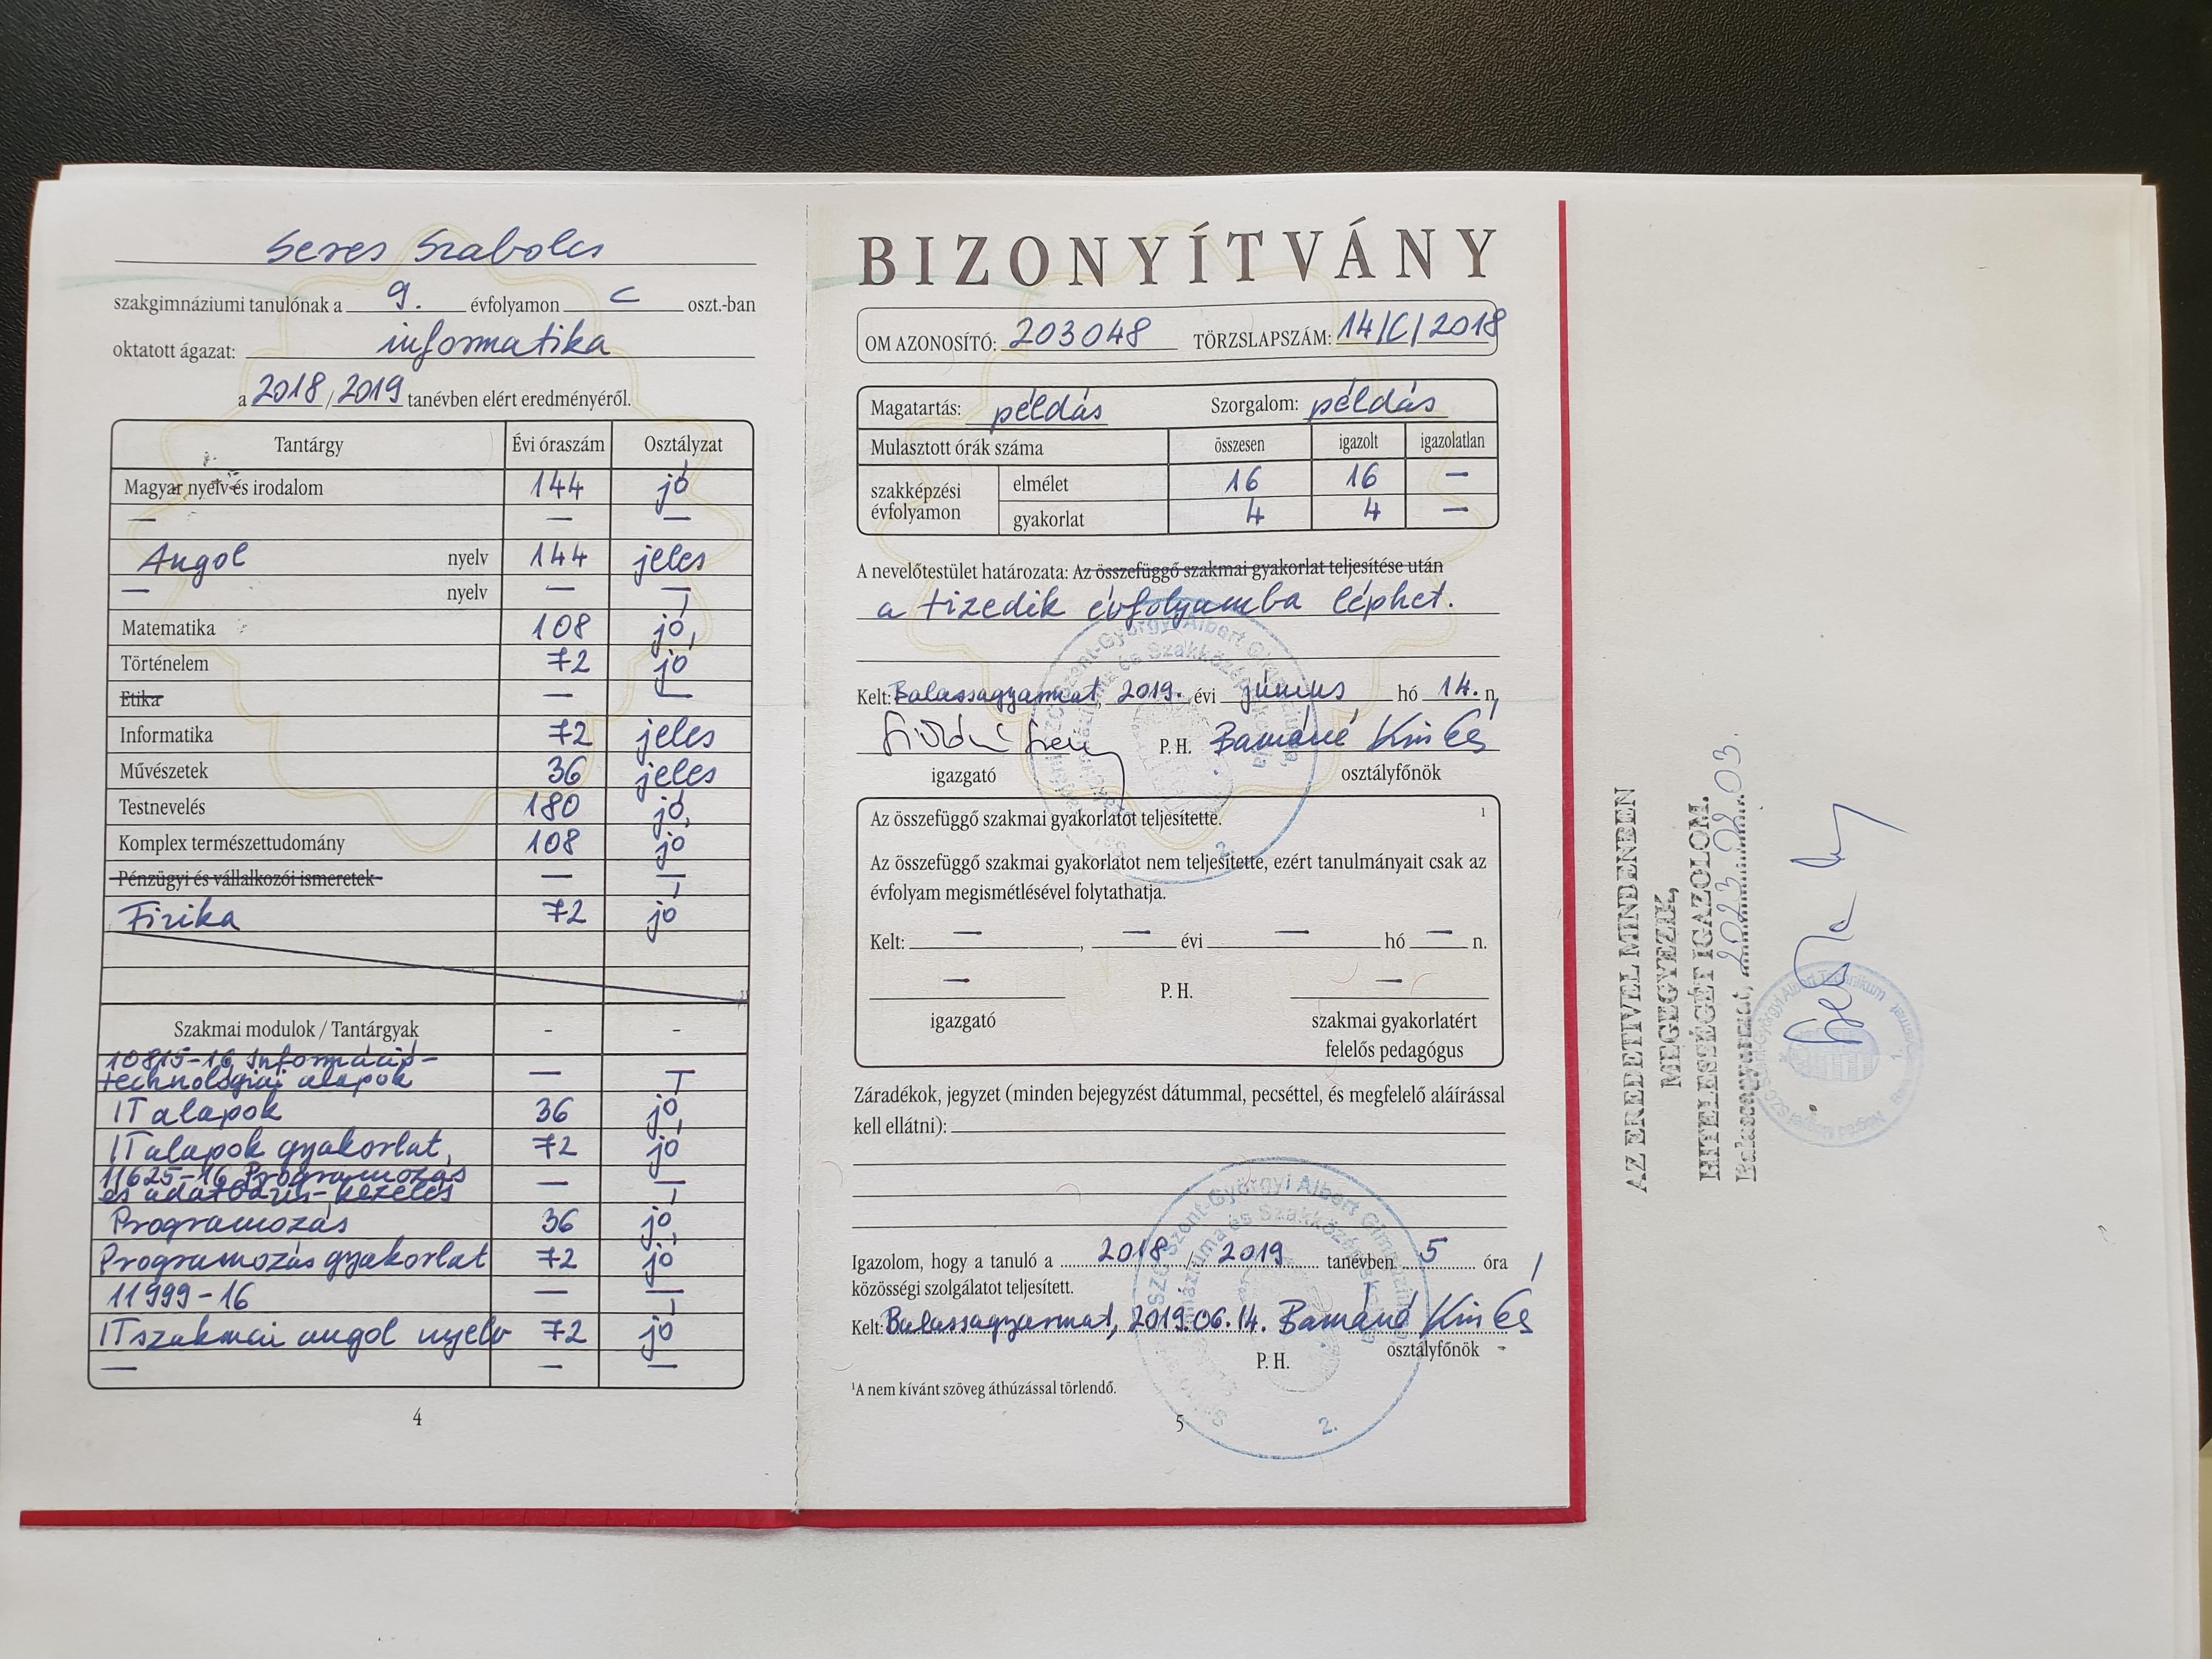 Seres Szabolcs
szakgimnáziumi tanulónak a 9. évfolyamon C oszt.-ban
oktatott ágazat: informatika
a 2018/2019 tanévben elért eredményéről.
Tantárgy Évi óraszám Osztályzat
Magyar nyelv és irodalom 144 jó
— — —
Angol nyelv 144 jeles
— nyelv — —
Matematika 108 jó
Történelem 72 jó
Etika — —
Informatika 72 jeles
Művészetek 36 jeles
Testnevelés 180 jó
Komplex természettudomány 108 jó
Pénzügyi és vállalkozói ismeretek — —
Fizika 72 jó
Szakmai modulok / Tantárgyak - -
10815-16 Információ-
technológiai alapok — —
IT alapok 36 jó
IT alapok gyakorlat 72 jó
11625-16 Programozás
és adatbázis-kezelés — —
Programozás 36 jó
Programozás gyakorlat 72 jó
11999-16 — —
IT szakmai angol nyelv 72 jó
— — —
4
BIZONYÍTVÁNY
OM AZONOSÍTÓ: 203048 TÖRZSLAPSZÁM: 14/C/2018
Magatartás: példás Szorgalom: példás
Mulasztott órák száma összesen igazolt igazolatlan
szakképzési évfolyamon elmélet 16 16 —
gyakorlat 4 4 —
A nevelőtestület határozata: Az összefüggő szakmai gyakorlat teljesítése után
a tizedik évfolyamba léphet.
Kelt: Balassagyarmat, 2019. évi június hó 14. n.
P. H.
igazgató osztályfőnök
Az összefüggő szakmai gyakorlatot teljesítette. 1
Az összefüggő szakmai gyakorlatot nem teljesítette, ezért tanulmányait csak az
évfolyam megismétlésével folytathatja.
Kelt: —, — évi — hó — n.
— P. H. —
igazgató szakmai gyakorlatért
felelős pedagógus
Záradékok, jegyzet (minden bejegyzést dátummal, pecséttel, és megfelelő aláírással
kell ellátni):
Igazolom, hogy a tanuló a 2018 / 2019 tanévben 5 óra
közösségi szolgálatot teljesített.
Kelt: Balassagyarmat, 2019.06.14.
P. H. osztályfőnök
¹A nem kívánt szöveg áthúzással törlendő.
5
AZ EREDETIVEL MINDENBEN
MEGEGYEZIK,
HITELESSÉGÉT IGAZOLOM.
Balassagyarmat, 2023.02.03.